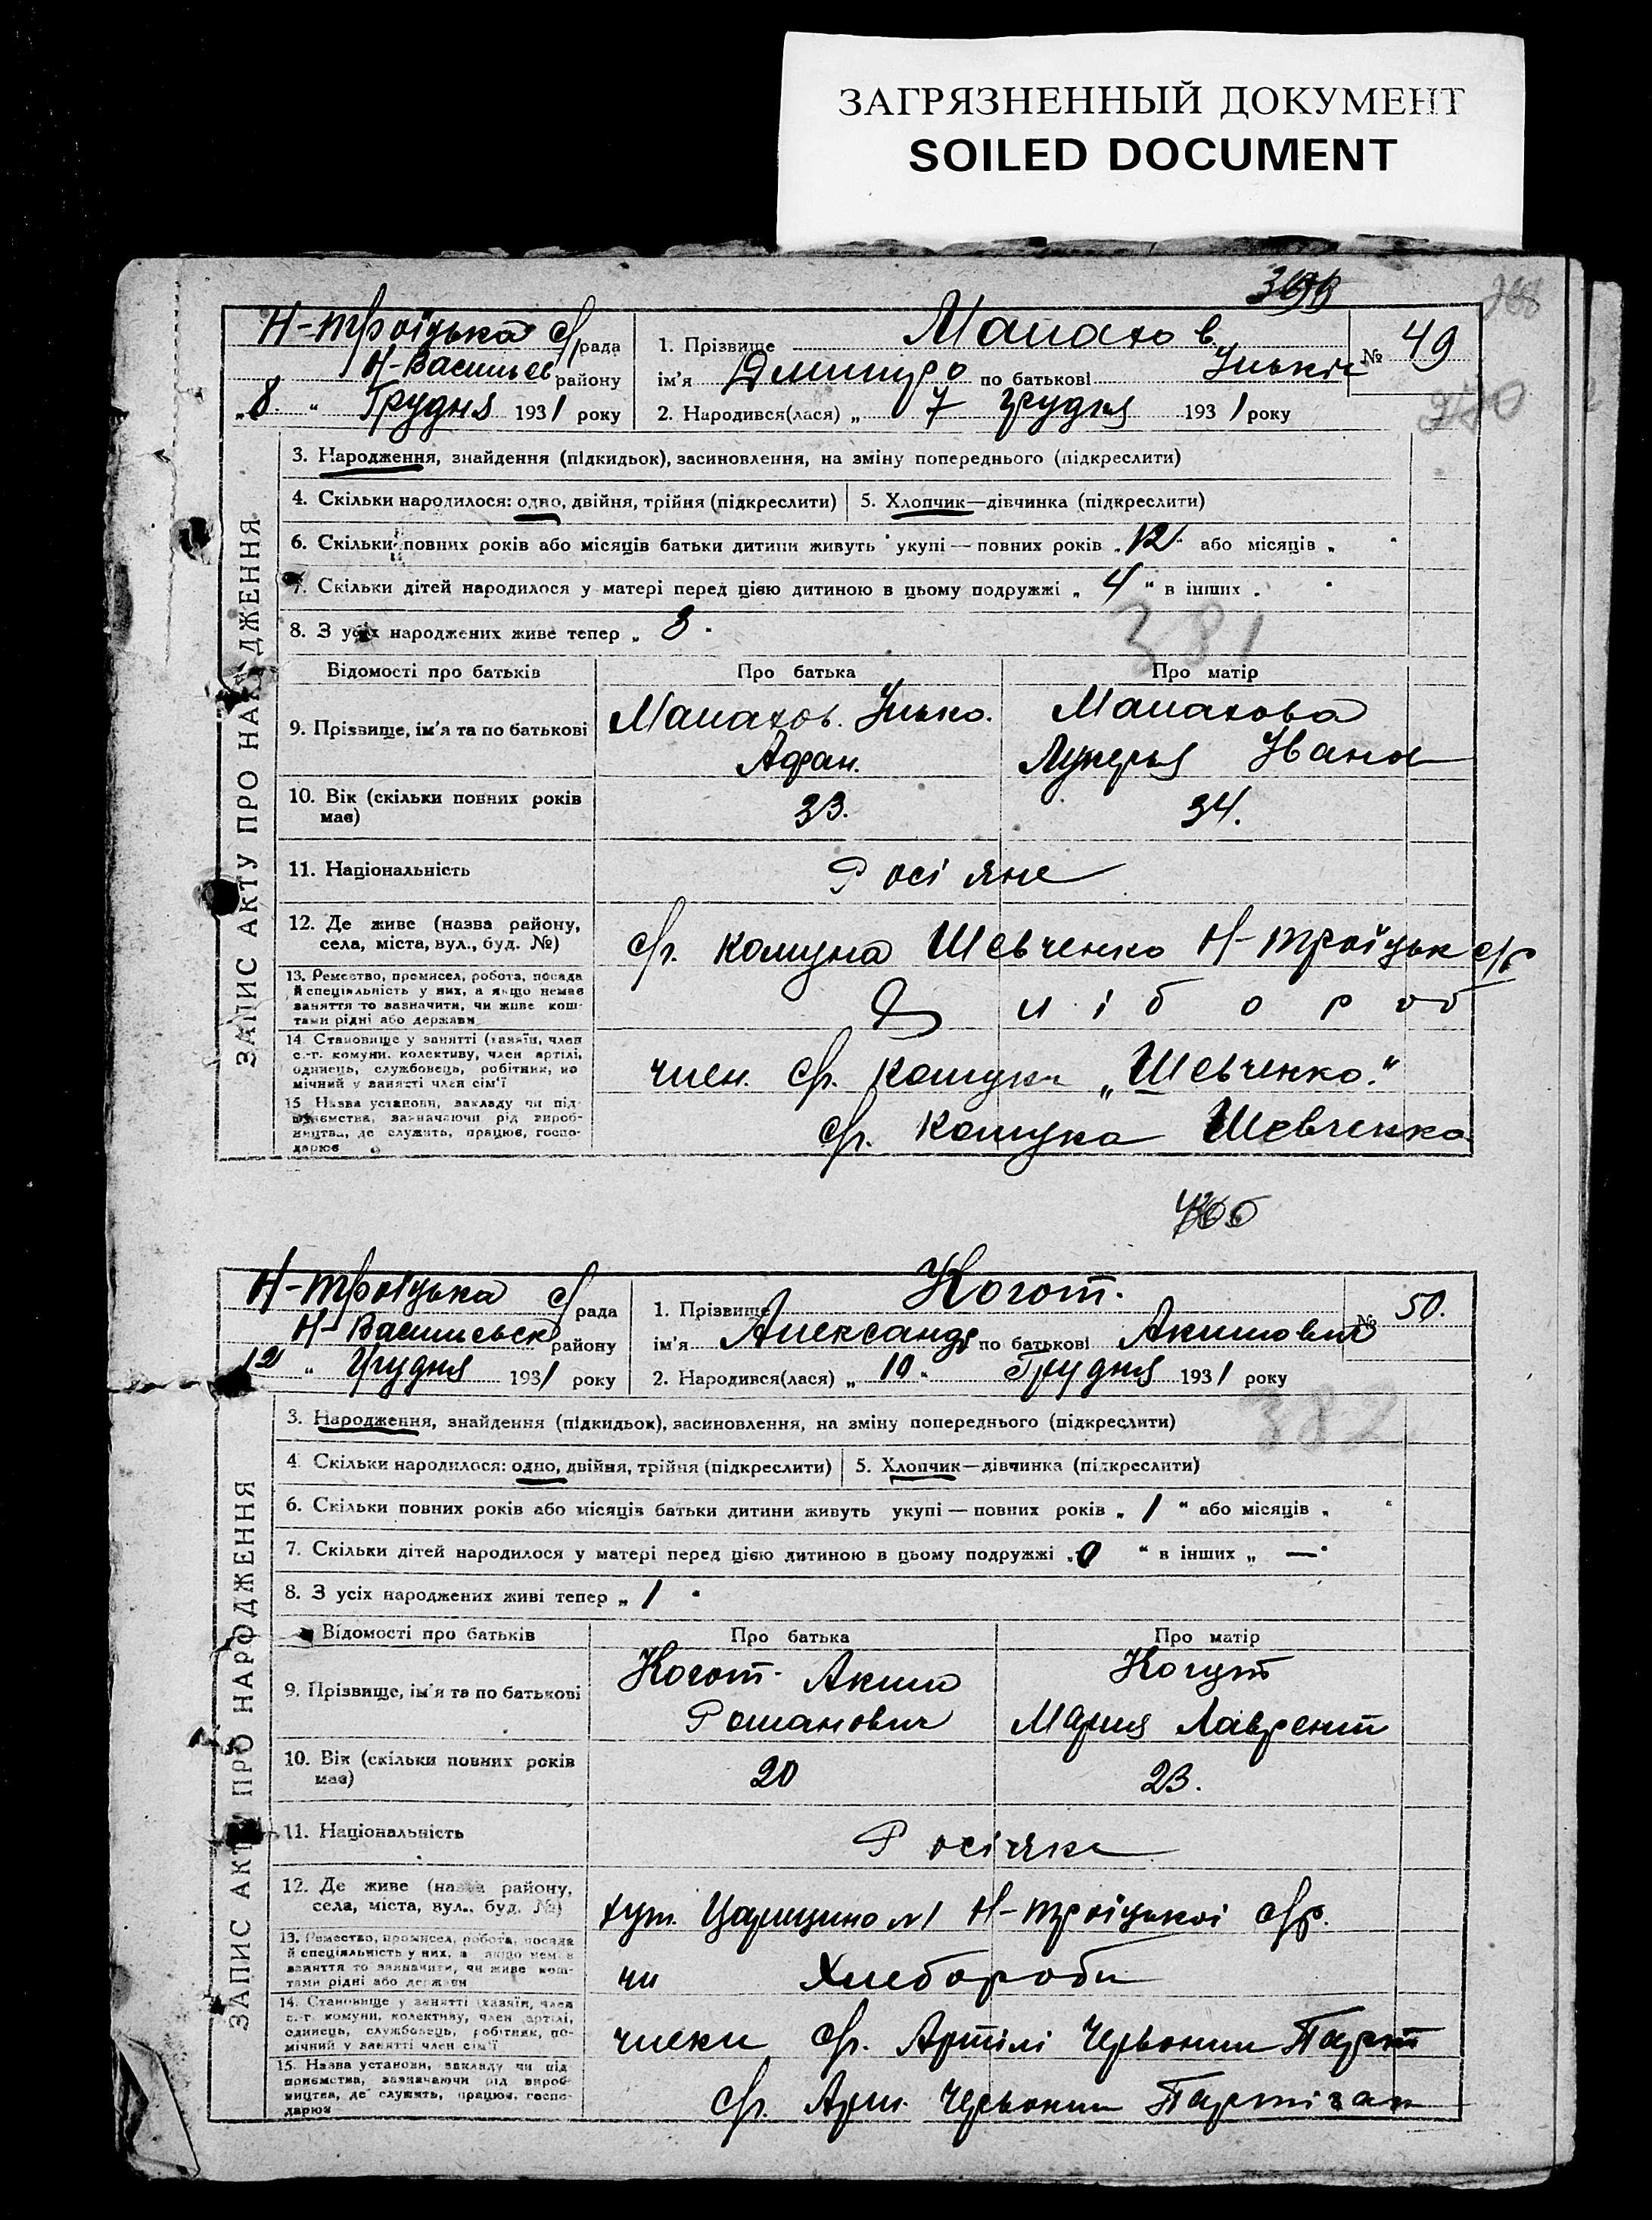 ЗАГРЯЗНЕННЫЙ ДОКУМЕНТ
SOILED DOCUMENT
Н-Троїцька с/рада
Н-Васильев району
„8“ Грудня 1931 року
1. Прізвище Малахов
№ 49
ім'я Дмитро по батькові Ільків
2. Народився(лася) „ 7 грудня 1931 року
ЗАПИС АКТУ ПРО НАРОДЖЕННЯ
3. Народження, знайдення (підкидьок), засиновлення, на зміну попереднього (підкреслити)
4. Скільки народилося: одно, двійня, трійня (підкреслити) 5. Хлопчик—дівчинка (підкреслити)
6. Скільки повних років або місяців батьки дитини живуть укупі — повних років „12“ або місяців „ “
7. Скільки дітей народилося у матері перед цією дитиною в цьому подружжі „ 4 “ в інших „ “
8. З усіх народжених живе тепер „ 3 “
381
Відомості про батьків Про батька Про матір
9. Прізвище, ім'я та по батькові
Малахов. Ілько. Афан.
Малахова Лукерья Іванов
10. Вік (скільки повних років має)
33. 34.
11. Національність Росіяне
12. Де живе (назва району, села, міста, вул., буд. №)
с/г. комуна Шевченко Н-Троїцьк с/р
13. Ремество, промисел, робота, посада й спеціяльність у них, а якщо немає заняття то вазначити, чи живе коштами рідні або держави
Хлібороб
14. Становище у занятті (хазяїн, член с.-г. комуни, колективу, член артілі, одинець, службовець, робітник, помічний у занятті член сім'ї
член. с/г. комуни „Шевченко.“
15. Назва установи, закладу чи підприємства, вазначаючи рід виробництва, де служить, працює, господарює
с/г. Комуна Шевченко
Н-Троїцька с/рада
Н-Васильевск району
12 “ Грудня 1931 року
1. Прізвище Когот.
№ 50.
ім'я Александр по батькові Акимович
2. Народився(лася) „ 10 “ Грудня 1931 року
382
ЗАПИС АКТУ ПРО НАРОДЖЕННЯ
3. Народження, знайдення (підкидьок), засиновлення, на зміну попереднього (підкреслити)
4. Скільки народилося: одно, двійня, трійня (підкреслити) 5. Хлопчик—дівчинка (підкреслити)
6. Скільки повних років або місяців батьки дитини живуть укупі — повних років „ 1 “ або місяців „ “
7. Скільки дітей народилося у матері перед цією дитиною в цьому подружжі „0 “ в інших „ — “
8. З усіх народжених живі тепер „ 1 “
Відомості про батьків Про батька Про матір
9. Прізвище, ім'я та по батькові
Когот. Аким Романович
Когут Мария Лаврент
10. Вік (скільки повних років має)
20 23.
11. Національність Росіяне
12. Де живе (назва району, села, міста, вул., буд. №)
хут. Царицино №1 Н-Троїцької с/р.
13. Ремество, промисел, робота, посада й спеціяльність у них, а якщо немає заняття то вазначити, чи живе коштами рідні або держави
Хлебороби
14. Становище у занятті (хазяїн, член с.-г. комуни, колективу, член артілі, одинець, службовець, робітник, помічний у занятті член сім'ї
члени с/г. Артілі Червоний Парт
15. Назва установи, закладу чи підприємства, вазначаючи рід виробництва, де служить, працює, господарює
с/г. Арт. Червоний Партізан